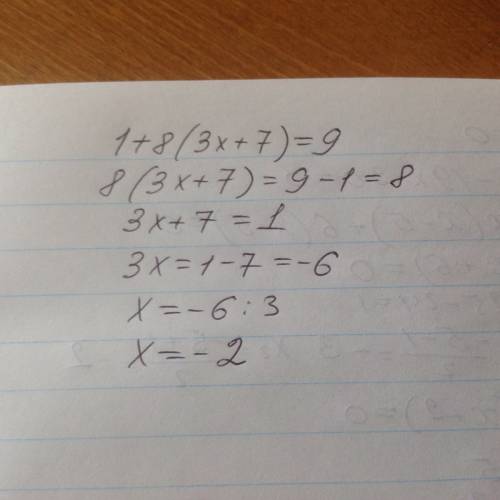 1+8(3x+7)=9
8(3x+7)=9-1=8
3x+7=1
3x=1-7=-6
x=-6:3
x=-2